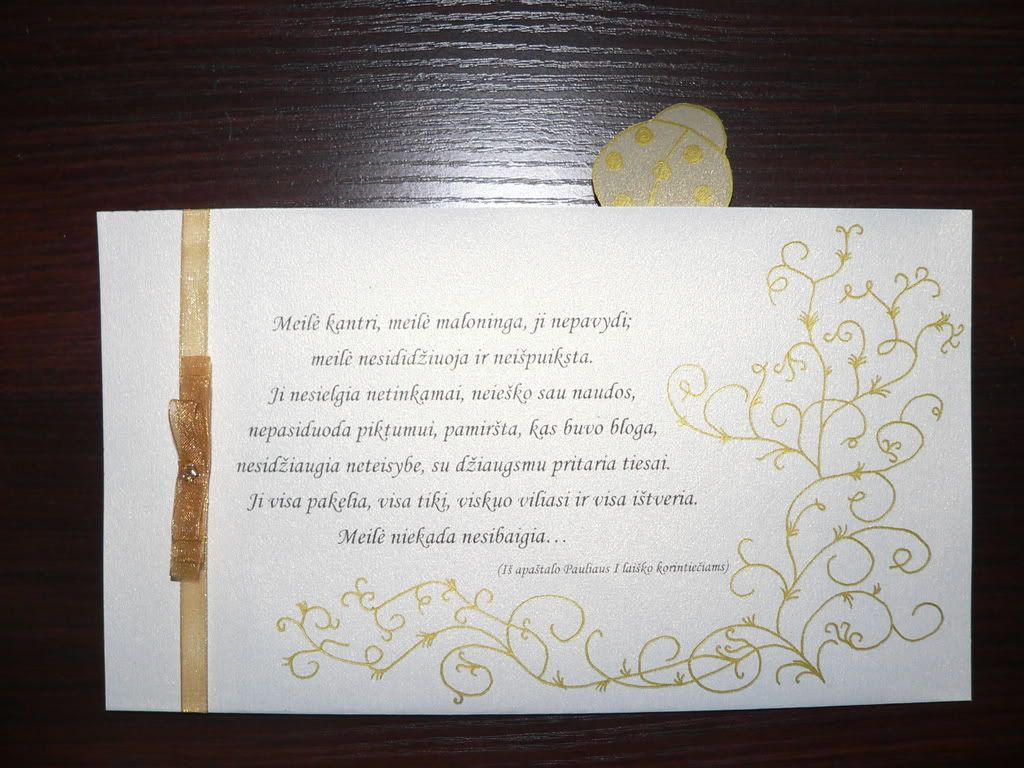 Meilė kantri, meilė maloninga, ji nepavydi;
meilė nesididžiuoja ir neišpuiksta.
Ji nesielgia netinkamai, neieško sau naudos,
nepasiduoda piktumui, pamiršta, kas buvo bloga,
nesidžiaugia neteisybe, su džiaugsmu pritaria tiesai.
Ji visa pakelia, visa tiki, viskuo viliasi ir visa ištveria.
Meilė niekada nesibaigia…
(Iš apaštalo Pauliaus I laiško korintiečiams)